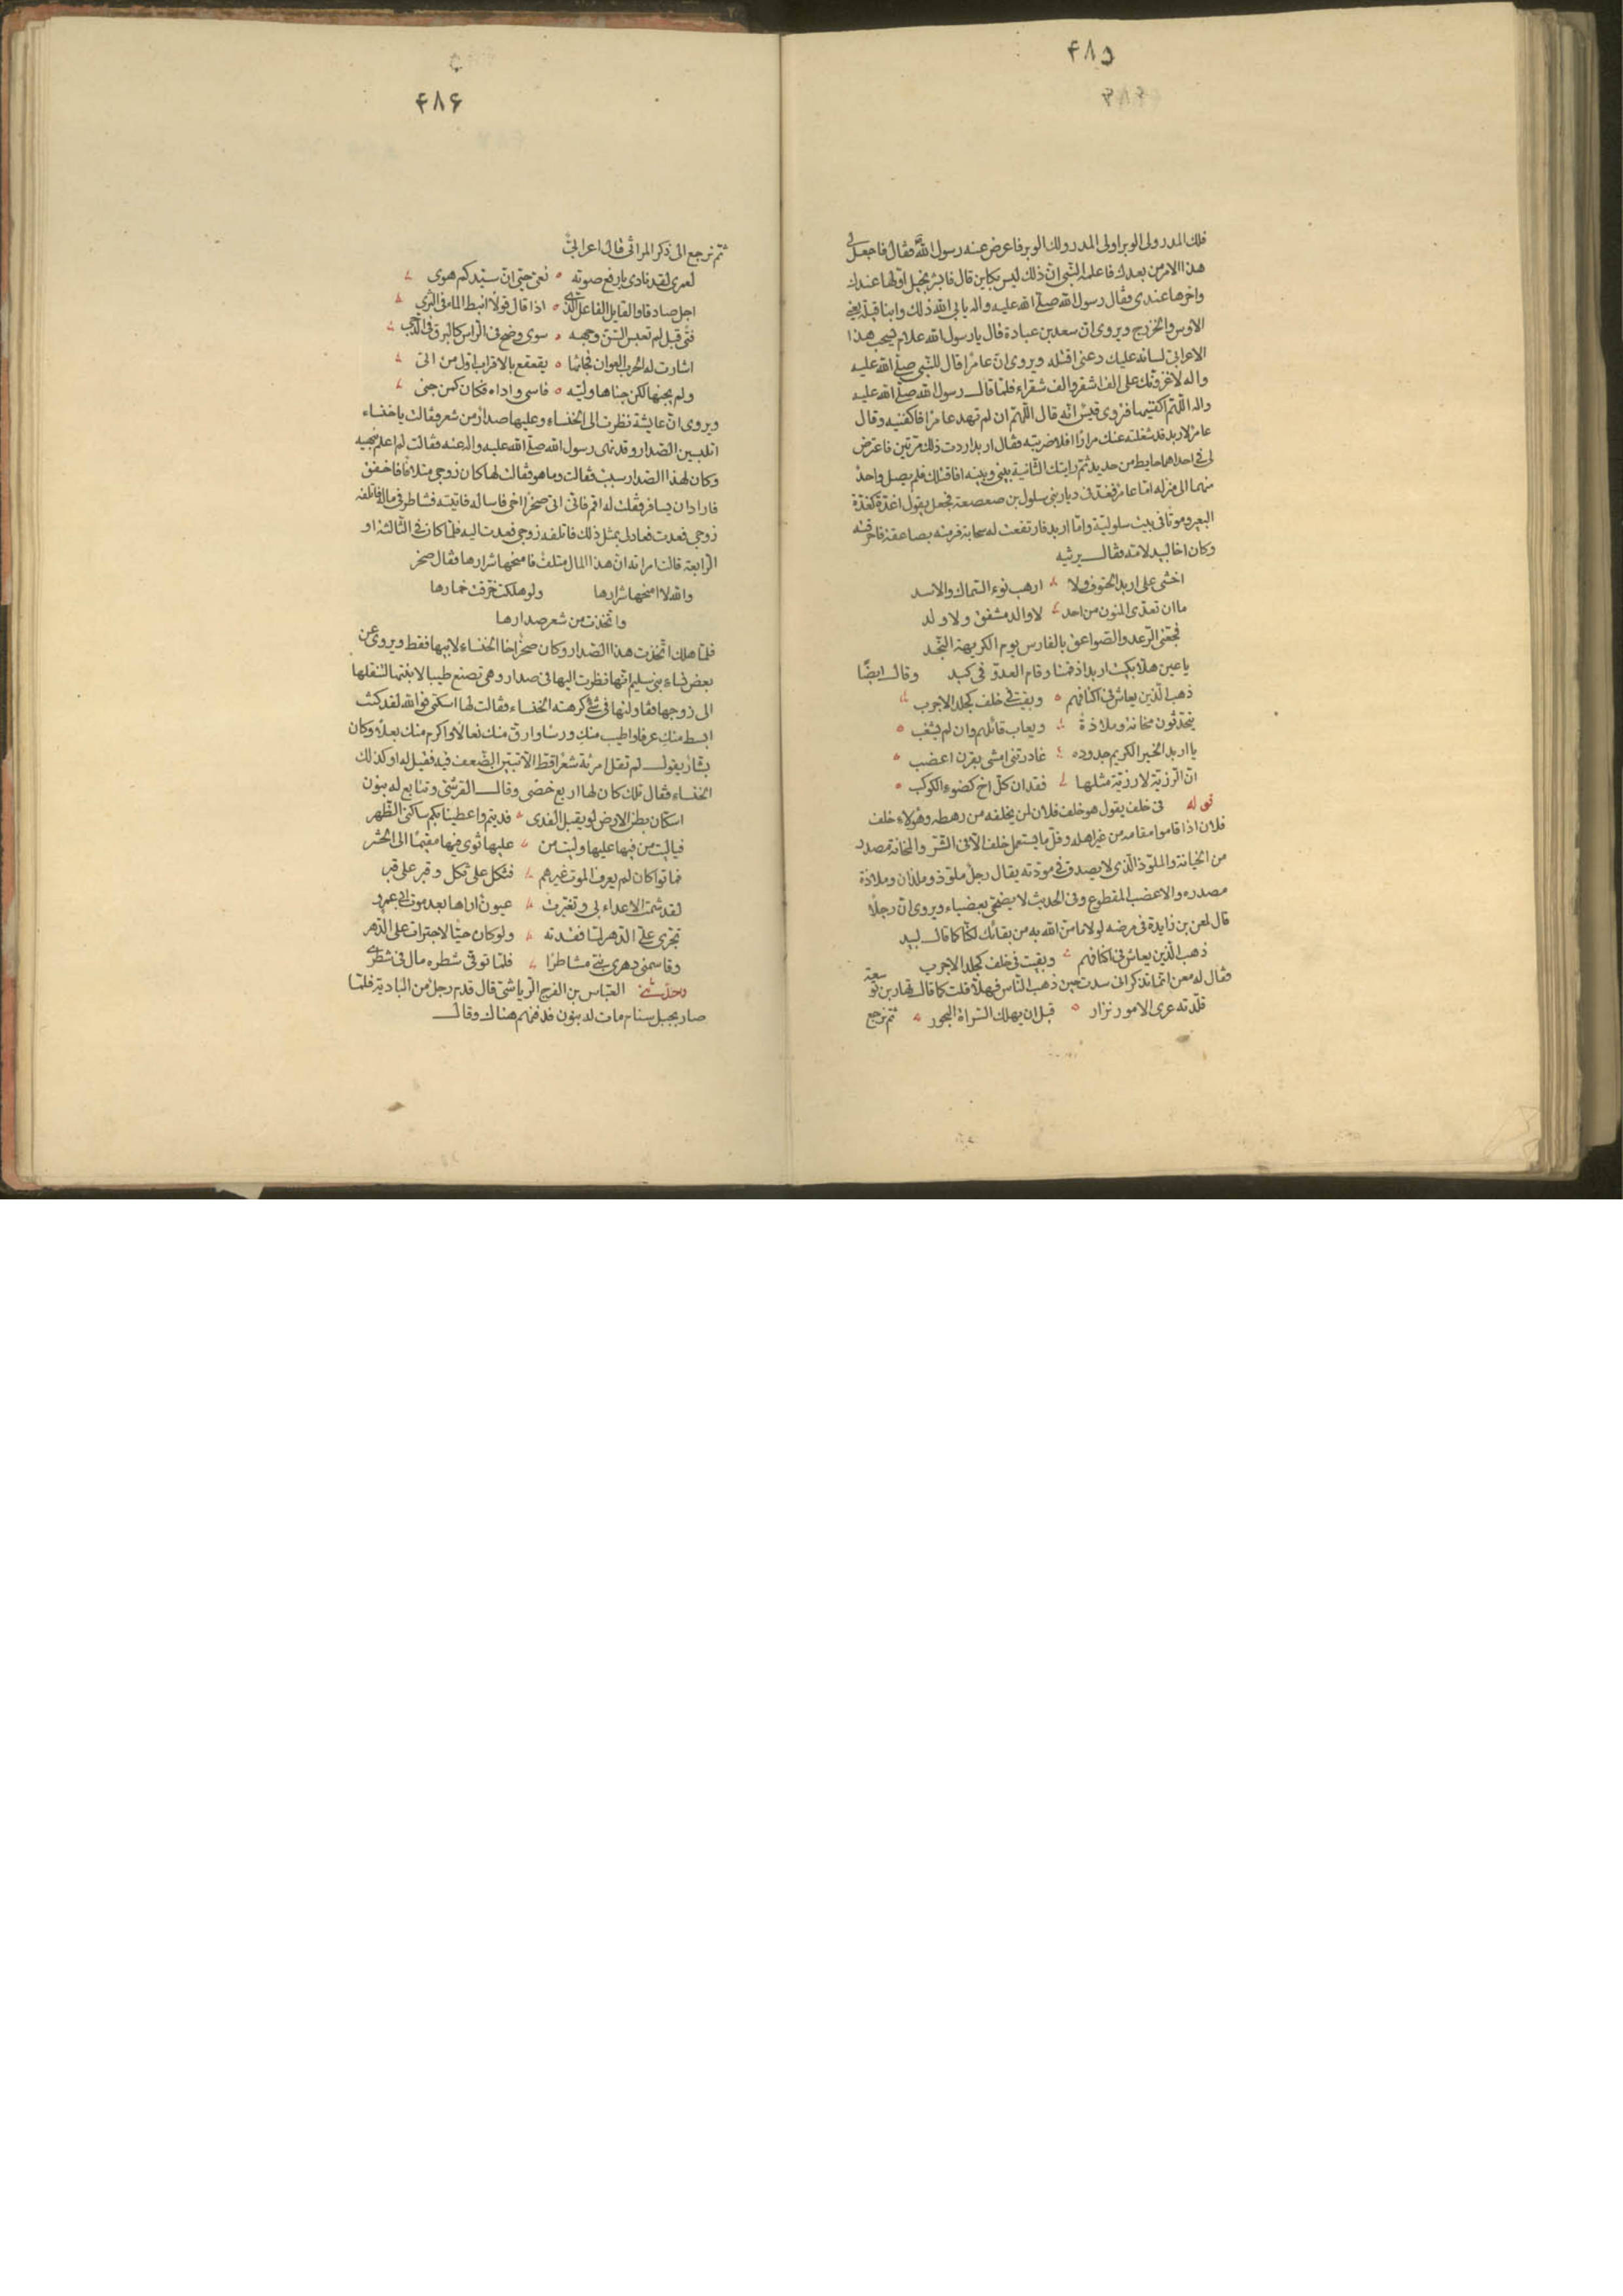 ۴۸۵
فلك المدر ولى الوبر او لى المدر ولك الوبر فاعرض عنه رسول الله فقال فاجعل لى
هذا الامر من بعدك فاعلمه النبى ان ذلك ليس بكاين قال فابشر بخيل اولها عندك
واخرها عندى فقال رسول الله صلى الله عليه واله يابى الله ذلك وابنا قيلة يعنى
الاوس والخزرج ويروى ان سعد بن عبادة قال يا رسول الله علام يسحب هذا
الاعرابى لسانه عليك دعنى اقتله ويروى ان عامرا قال للنبى صلى الله عليه
واله لاغزونك على الف اشقر والف شقراء فلما قال رسول الله صلى الله عليه
واله اللهم اكفنيهما فزوى قيس انه قال اللهم ان لم تهد عامرا فاكفنيه وقال
عامر لاربد قد شغلته عنك مرارا افلا ضربته فقال اربد اردت ذلك مرتين فاعترض
لى فى احداهما حايط من حديد ثم رايتك الثانية بينى وبينه افاقتلك فلم يصل واحد
منهما الى منزله اما عامر فغد فى ديار بنى سلول بن صعصعة فجعل يقول اغدة كغدة
البعير وموتا فى بيت سلولية واما اربد فارتفعت له سحابة فرمته بصاعقة فاحرقته
وكان اخا لبيد لامه فقال يرثيه
اخشى على اربد الحتوف ولا ارهب نوء السماك والاسد
ما ان تعدى المنون من احد لا والد مشفق ولا ولد
فجعنى الرعد والصواعق بالفارس يوم الكريهة النجد
يا عين هلا بكيت اربد اذ قمنا وقام العدو فى كبد وقال ايضًا
ذهب الذين يعاش فى اكنافهم وبقيت فى خلف كجلد الاجرب
يتحدثون مخانة وملاذة ويعاب قائلهم وان لم يشغب
يا اربد الخير الكريم جدوده غادرتنى امشى بقرن اعضب
ان الرزية لا رزية مثلها فقدان كل اخ كضوء الكوكب
قوله فى خلف يقول هو خلف فلان لمن يخلفه من رهطه وهولاء خلف
فلان اذا قاموا مقامه من غير اهله وقل ما يستعمل خلف الا فى الشر والمخانة مصدر
من الخيانة والملوذ الذى لا يصدق فى مودته يقال رجل ملوذ وملذان وملاذة
مصدره والاعضب المقطوع وفى الحديث لا يضحى بعضباء ويروى ان رجلا
قال لمعن بن زايدة فى مرضه لولا ما من الله به من بقائك لكنا كما قال لبيد
ذهب الذين يعاش فى اكنافهم وبقيت فى خلف كجلد الاجرب
فقال له معن انما تذكر انى سدت حين ذهب الناس فهلا قلت كما قال نهار بن توسعة
قلدته عرى الامور نزار قبل ان يهلك السراة البحور ثم نرجع
۴۸۶
ثم نرجع الى ذكر المراثى قال اعرابى
لعمرى لقد نادى بارفع صوته نعى حيى ان سيدكم هوى
اجل صادقا والقايل الفاعل الذى اذا قال قولا انبط الماء فى الثرى
فتى قبل لم تعبس السن وجهه سوى وضح فى الراس كالبرق فى الدجى
اشارت له الحرب العوان فجاءها يقعقع بالاقراب اول من اتى
ولم يجنها لكن جناها وليه فاسى واداه فكان كمن جنى
ويروى ان عايشة نظرت الى الخنساء وعليها صدار من شعر فقالت يا خنساء
اتلبسين الصدار وقد نهى رسول الله صلى الله عليه واله عنه فقالت لم اعلم بنهيه
وكان لهذا الصدار سبب فقالت وما هو فقالت لها كان زوجى متلافا فاخفق
فاراد ان يسافر فقلت له اقم فانى اتى صخرا اخى فاساله فاتيته فشاطرنى ماله فاتلفه
زوجى فعدت فعاد لى بمثل ذلك فاتلفه زوجى فعدت اليه فلما كان فى الثالثة او
الرابعة قالت امراته ان هذا المال متلف فامنحها شرارها فقال صخر
والله لا امنحها شرارها ولو هلكت خرقت خمارها
واتخذت من شعر صدارها
فلما هلك اتخذت هذا الصدار وكان صخر اخا الخنساء لابيها فقط ويروى عن
بعض نساء بنى سليم انها نظرت اليها فى صدار وهى تصنع طيبا لابنتها لتنقلها
الى زوجها فقاولتها فى شئ كرهته الخنساء فقالت لها اسكتى فوالله لقد كنت
ابسط منك عرفا واطيب منك ورسا وارق منك نعالا واكرم منك بعلا وكان
بشار يقول لم تقل امرئة شعرا قط الا تبين الضعف فيه فقيل له او كذلك
الخنساء فقال تلك كان لها اربع خصى وقال القرشى وتتابع له بنون
اسكان بطن الارض لو يقبل الفدى فديتم واعطينا بكم ساكنى الظهر
فياليت من فيها عليها وليت من عليها ثوى فيها مقيما الى الحشر
فماتوا كان لم يعرف الموت غيرهم فثكل على ثكل وقبر على قبر
لقد شمت الاعداء بى وتغيرت عيون اراها بعد موت ابى عمرو
تجرى على الدهر لما فقدته ولو كان حيا لاجترات على الدهر
وقاسمنى دهرى بنى مشاطرا فلما توفى شطره مال فى شطرى
وحدثنى العباس بن الفرج الرياشى قال قدم رجل من البادية فلما
صار بجبل سنام مات له بنون فدفنهم هناك وقال